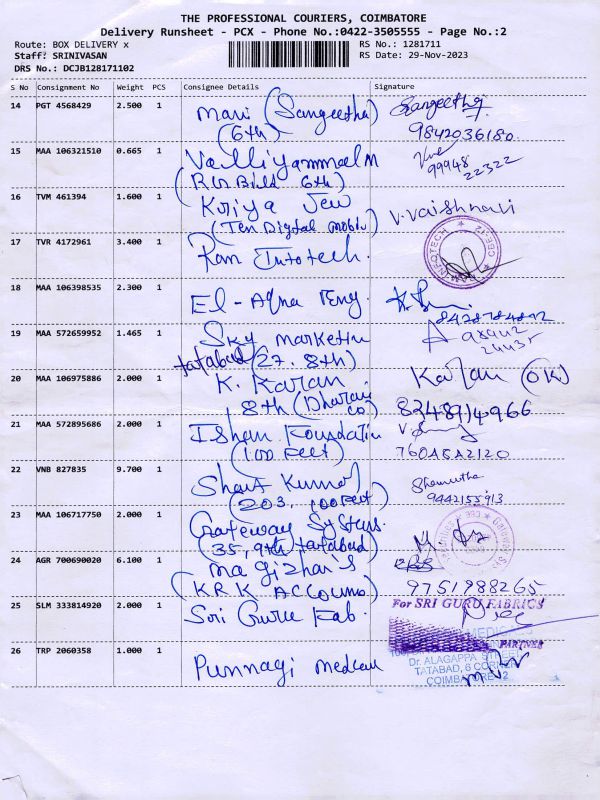 THE PROFESSIONAL COURIERS, COIMBATORE
Delivery Runsheet - PCX - Phone No.:0422-3505555 - Page No.:2
Route: BOX DELIVERY x
RS No.: 1281711
Staff: SRINIVASAN
RS Date: 29-Nov-2023
DRS No.: DCJB128171102
S No Consignment No Weight PCS Consignee Details Signature
14 PGT 4568429 2.500 1 Mani (Sangeetha) Sangeetha
(6th) 9842036180
15 MAA 106321510 0.665 1 Valliyammal M
99948 22322
(RVR Bild 6th)
16 TVM 461394 1.600 1 Kriya Jew V. Vaishnavi
(Ten Digital Mobile)
17 TVR 4172961 3.400 1 Ram Infotech.
RAM INFOTECH ★ CBE-12 ★
18 MAA 106398535 2.300 1 El - Aqna Eng.
8428784892
19 MAA 572659952 1.465 1 Sky Marketin
tatabad (27. 8th)
20 MAA 106975886 2.000 1 K. Kalan Kalan (OK)
8th (Dharani co) 8248914966
21 MAA 572895686 2.000 1 Isham Foundatin
(100 Feet) 7604582120
22 VNB 827835 9.700 1 Shant Kumar
(203, 100 Feet) 9442155913
23 MAA 106717750 2.000 1 Gateway Systems.
(35, 9th tatabad)
24 AGR 700690020 6.100 1 Magizhan's
(KRK Accouns) 9751988265
25 SLM 333814920 2.000 1 Sri Guru Fab.
For SRI GURU FABRICS
PARTNER
26 TRP 2060358 1.000 1 Punnagi Medical
Dr. ALAGAPPA STREET
TATABAD, 6 CORNER
COIMBATORE-12